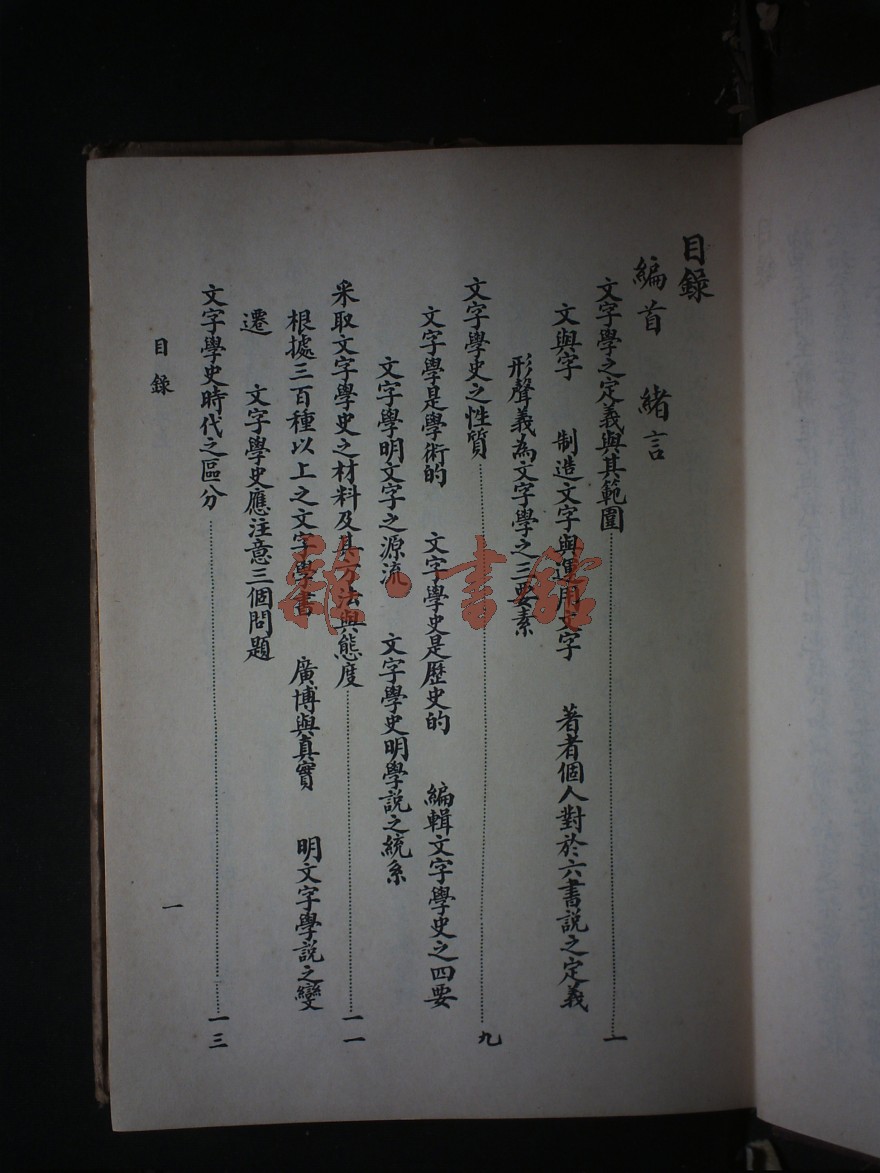 目錄
編首　緒言
文字學之定義與其範圍……一
文與字　制造文字與運用文字　著者個人對於六書説之定義
形聲義為文字學之三要素
文字學史之性質……九
文字學是學術的　文字學史是歷史的　編輯文字學史之四要
文字學明文字之源流　文字學史明學説之統系
采取文字學史之材料及其方法與態度……一一
根據三百種以上之文字學書　廣博與真實　明文字學説之變
遷　文字學史應注意三個問題
文字學史時代之區分……一三
目錄
一